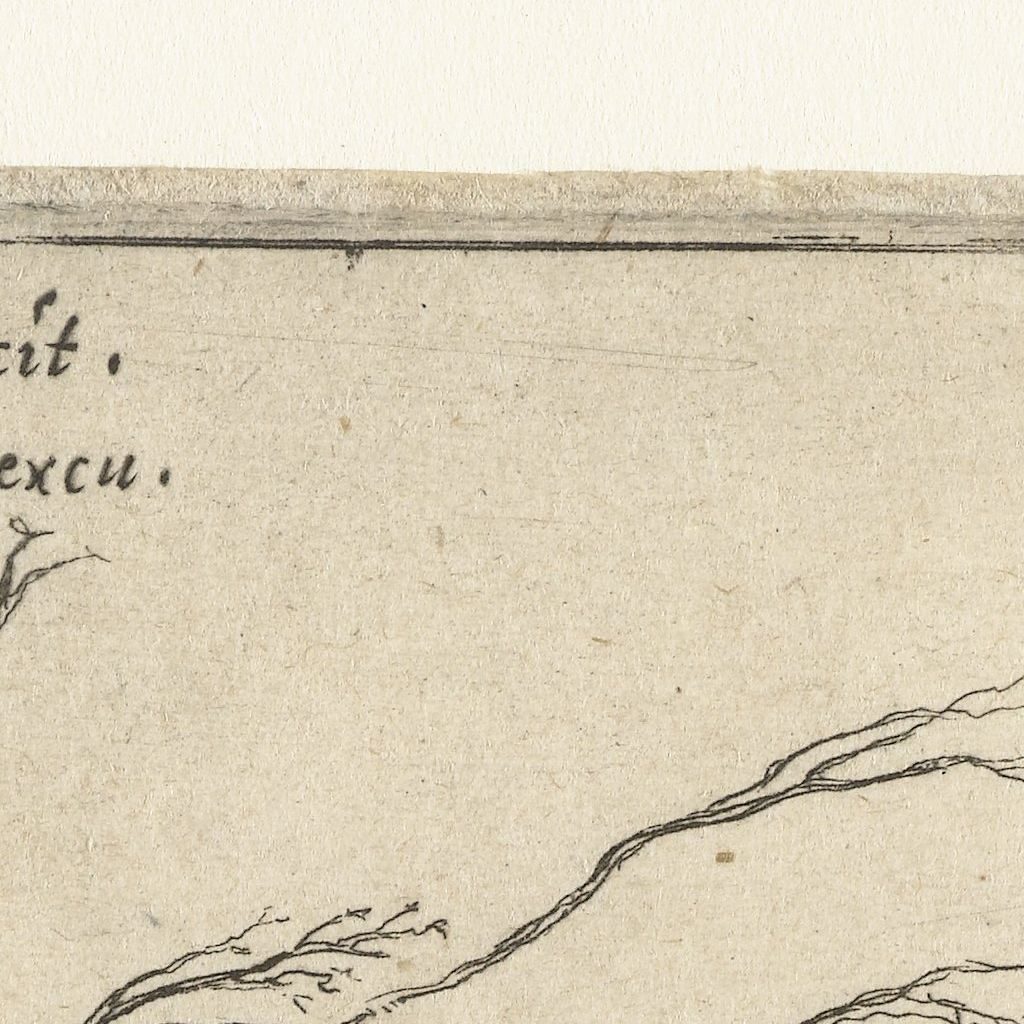 cit.
excu.